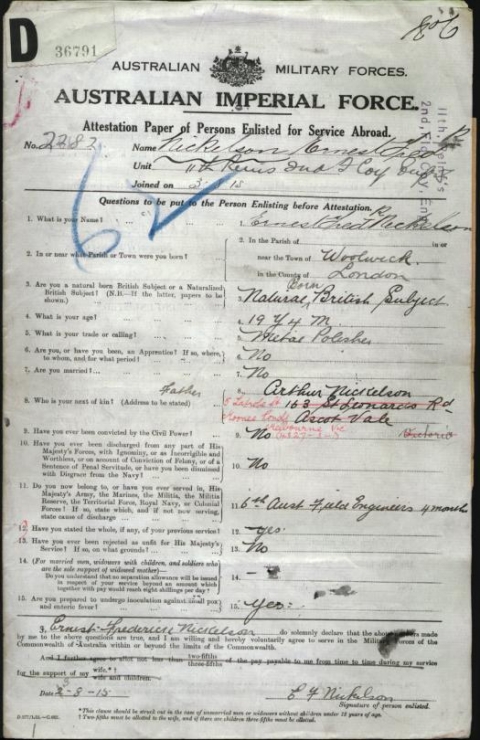 D
36791
AUSTRALIAN MILITARY FORCES.
AUSTRALIAN IMPERIAL FORCE.
Attestation Paper of Persons Enlisted for Service Abroad.
No. 2282 Name Nickelson Ernest Fred
Unit 11th Reins 2nd F Coy Engrs
Joined on 3 15
11th Reinf's
2nd Field Coy. Eng
Questions to be put to the Person Enlisting before Attestation.
1. What is your Name? 1. Ernest Fred Nickelson
2. In or near what Parish or Town were you born? 2. In the Parish of in or
near the Town of Woolwich
in the County of London
3. Are you a natural born British Subject or a Naturalized British Subject? (N.B.—If the latter, papers to be shown.) 3. Natural Born British Subject
4. What is your age? 4. 19 Y 4 M
5. What is your trade or calling? 5. Metal Polisher
6. Are you, or have you been, an Apprentice? If so, where, to whom, and for what period? 6. No
7. Are you married? 7. No
8. Who is your next of kin? (Address to be stated) Father 8. Arthur Nickelson
163 St Leonards Rd
Ascot Vale
Victoria
9. Have you ever been convicted by the Civil Power? 9. No
10. Have you ever been discharged from any part of His Majesty's Forces, with Ignominy, or as Incorrigible and Worthless, or on account of Conviction of Felony, or of a Sentence of Penal Servitude, or have you been dismissed with Disgrace from the Navy? 10. No
11. Do you now belong to, or have you ever served in, His Majesty's Army, the Marines, the Militia, the Militia Reserve, the Territorial Force, Royal Navy, or Colonial Forces? If so, state which, and if not now serving, state cause of discharge 11. 6th Aust Field Engineers 4 month
12. Have you stated the whole, if any, of your previous service? 12. yes.
13. Have you ever been rejected as unfit for His Majesty's Service? If so, on what grounds? 13. No
14. (For married men, widowers with children, and soldiers who are the sole support of widowed mother)—
Do you understand that no separation allowance will be issued in respect of your service beyond an amount which together with pay would reach eight shillings per day? 14. -
15. Are you prepared to undergo inoculation against small pox and enteric fever? 15. Yes:
I, Ernest Frederick Nickelson do solemnly declare that the above answers made
by me to the above questions are true, and I am willing and hereby voluntarily agree to serve in the Military Forces of the
Commonwealth of Australia within or beyond the limits of the Commonwealth.
And I further agree to allot not less than two-fifths three-fifths of the pay payable to me from time to time during my service
for the support of my wife.* wife and children.
Date 2-8-15 E F Nickelson
Signature of person enlisted.
*This clause should be struck out in the case of unmarried men or widowers without children under 18 years of age.
†Two-fifths must be allotted to the wife, and if there are children three-fifths must be allotted.